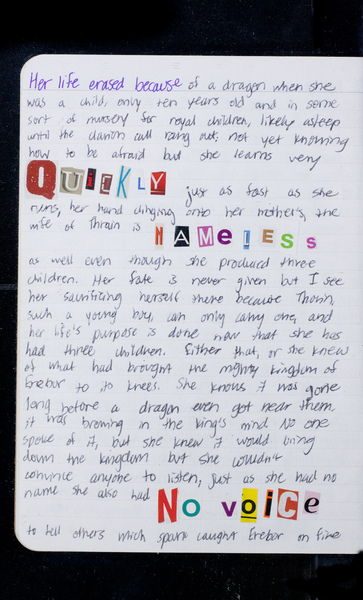 Her life erased because of a dragon when she
was a child, only ten years old and in some
sort of nursery for royal children, likely asleep
until the clarion call rang out; not yet knowing
how to be afraid but she learns very
QUICKLY just as fast as she
runs, her hand clinging onto her mother's, the
wife of Thrain is NAMELESS
as well even though she produced three
children. Her fate is never given but I see
her sacrificing herself there because Thorin,
such a young boy, can only carry one, and
her life's purpose is done now that she has
had three children. Either that, or she knew
of what had brought the mighty kingdom of
Erebor to its knees. She knows it was gone
long before a dragon even got near them.
it was brewing in the king's mind. No one
spoke of it, but she knew it would bring
down the kingdom but she couldn't
convince anyone to listen, just as she had no
name she also had NO voice
to tell others which spark caught Erebor on fire